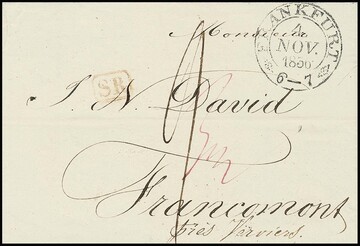 Monsieur
FRANKFURT
4
NOV.
1856
6-7
S.R.
J. N. David
Francomont
près Verviers.